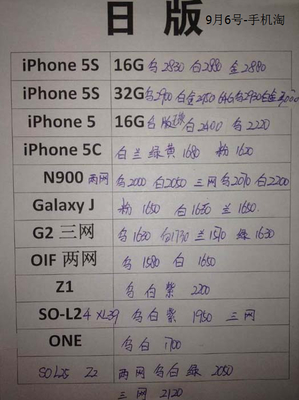 日 版
9月6号-手机淘
iPhone 5S 16G 乌2830 白2880 金2880
iPhone 5S 32G 乌2900 白金2950 64G乌2950白金3000
iPhone 5 16G 乌 白2400 乌2220
iPhone 5C 白兰绿黄1680 粉1620
N900 两网 乌2000 白2050 三网乌2070 白2200
Galaxy J 粉1650 白1650 兰1650.
G2 三网 乌1630 白1770 兰1570 1630
OIF 两网 乌1580 白1650
Z1 乌白紫 2200
SO-L24 XL39 乌白紫 1950 三网
ONE 乌白 1700
SOL25 Z2 两网乌白绿 2050
三网 2120